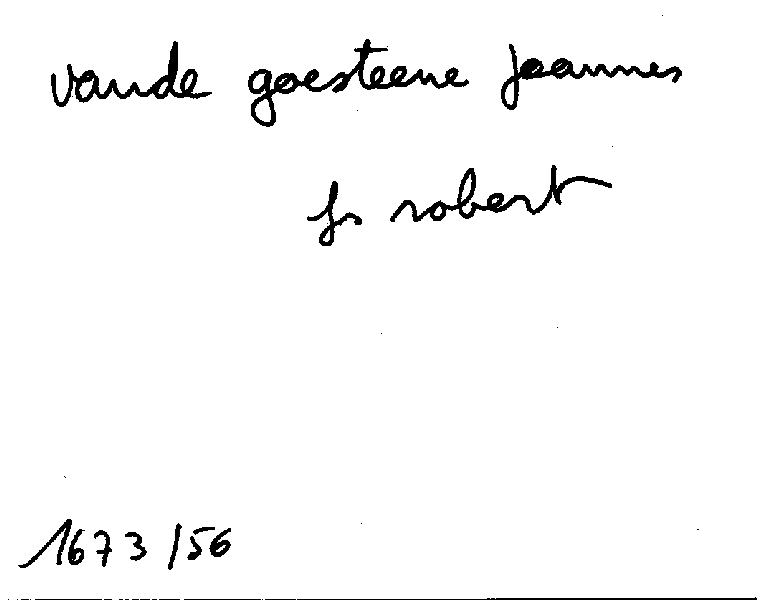 vande goesteene joannes
fs robert
1673/56